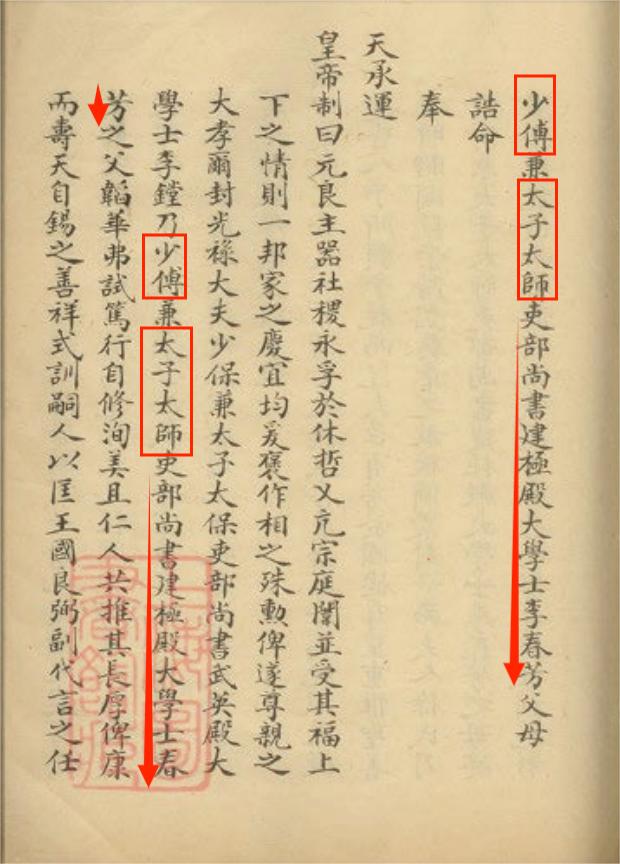 少傅兼太子太師吏部尚書建極殿大學士李春芳父母
誥命
奉
天承運
皇帝制曰元良主器社稷永孚於休哲乂亢宗庭闈並受其福上
下之情則一邦家之慶宜均爰褒作相之殊勳俾遂尊親之
大孝爾封光祿大夫少保兼太子太保吏部尚書武英殿大
學士李鏜乃少傅兼太子太師吏部尚書建極殿大學士春
芳之父韜華弗試篤行自修洵美且仁人共推其長厚俾康
而壽天自錫之善祥式訓嗣人以匡王國良弼副代言之任